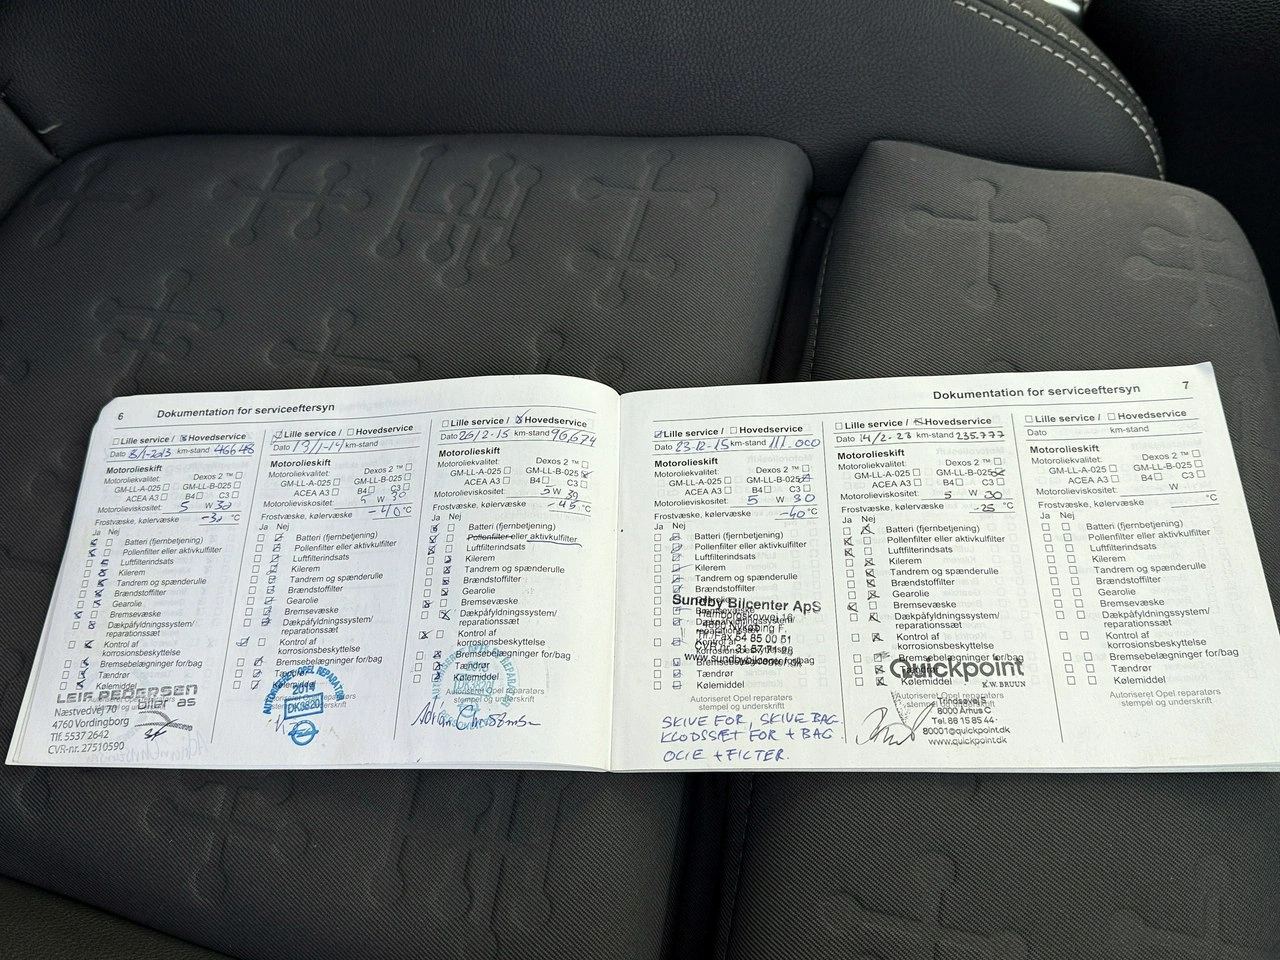 6 Dokumentation for serviceeftersyn
Lille service / Hovedservice
Dato 8/1-2013 km-stand 46648
Motorolieskift
Motoroliekvalitet: Dexos 2 ™
GM-LL-A-025 GM-LL-B-025
ACEA A3 B4 C3
Motorolieviskositet: 5 W 30
Frostvæske, kølervæske °C
Ja Nej
Batteri (fjernbetjening)
Pollenfilter eller aktivkulfilter
Luftfilterindsats
Kilerem
Tandrem og spænderulle
Brændstoffilter
Gearolie
Bremsevæske
Dækpåfyldningssystem/
reparationssæt
Kontrol af
korrosionsbeskyttelse
Bremsebelægninger for/bag
Tændrør
LEIF PEDERSEN
Biler as
Næstvedvej 70
4760 Vordingborg
Tlf. 5537 2642
CVR-nr. 27510590
Lille service / Hovedservice
Dato 13/1-14 km-stand
Motorolieskift
Motoroliekvalitet: Dexos 2 ™
GM-LL-A-025 GM-LL-B-025
ACEA A3 B4 C3
Motorolieviskositet: 5 W 30
Frostvæske, kølervæske -40 °C
Ja Nej
Batteri (fjernbetjening)
Pollenfilter eller aktivkulfilter
Luftfilterindsats
Kilerem
Tandrem og spænderulle
Brændstoffilter
Gearolie
Bremsevæske
Dækpåfyldningssystem/
reparationssæt
Kontrol af
korrosionsbeskyttelse
Bremsebelægninger for/bag
Kølemiddel
AUTORISERET OPEL REPARATØR
2014
DK3820
Lille service / Hovedservice
Dato 26/2-15 km-stand 90,674
Motorolieskift
Motoroliekvalitet: Dexos 2 ™
GM-LL-A-025 GM-LL-B-025
ACEA A3 B4 C3
Motorolieviskositet: 5 W 30
Frostvæske, kølervæske -45 °C
Ja Nej
Batteri (fjernbetjening)
Pollenfilter eller aktivkulfilter
Luftfilterindsats
Kilerem
Tandrem og spænderulle
Brændstoffilter
Gearolie
Bremsevæske
Dækpåfyldningssystem/
reparationssæt
Kontrol af
korrosionsbeskyttelse
Bremsebelægninger for/bag
Tændrør
Kølemiddel
Autoriseret Opel reparatørs
stempel og underskrift
Dokumentation for serviceeftersyn 7
Lille service / Hovedservice
Dato 23-12-15 km-stand 111.000
Motorolieskift
Motoroliekvalitet: Dexos 2 ™
GM-LL-A-025 GM-LL-B-025
ACEA A3 B4 C3
Motorolieviskositet: 5 W 30
Frostvæske, kølervæske -40 °C
Ja Nej
Batteri (fjernbetjening)
Pollenfilter eller aktivkulfilter
Luftfilterindsats
Kilerem
Tandrem og spænderulle
Brændstoffilter
Sundby Bilcenter ApS
Tændrør
Kølemiddel
Autoriseret Opel reparatørs
stempel og underskrift
SKIVE FOR, SKIVE BAG.
KLODSSÆT FOR + BAG
OLIE + FILTER.
Lille service / Hovedservice
Dato 14/2-23 km-stand 235.777
Motorolieskift
Motoroliekvalitet: Dexos 2 ™
GM-LL-A-025 GM-LL-B-025
ACEA A3 B4 C3
Motorolieviskositet: 5 W 30
Frostvæske, kølervæske -25 °C
Ja Nej
Batteri (fjernbetjening)
Pollenfilter eller aktivkulfilter
Luftfilterindsats
Kilerem
Tandrem og spænderulle
Brændstoffilter
Gearolie
Bremsevæske
Dækpåfyldningssystem/
reparationssæt
Kontrol af
korrosionsbeskyttelse
Bremsebelægninger for/bag
Kølemiddel
Quickpoint
K.W. BRUUN
Autoriseret Opel reparatørs
8000 Århus C
Tel. 86 15 85 44
80001@quickpoint.dk
www.quickpoint.dk
Lille service / Hovedservice
Dato km-stand
Motorolieskift
Motoroliekvalitet: Dexos 2 ™
GM-LL-A-025 GM-LL-B-025
ACEA A3 B4 C3
Motorolieviskositet: W
Frostvæske, kølervæske °C
Ja Nej
Batteri (fjernbetjening)
Pollenfilter eller aktivkulfilter
Luftfilterindsats
Kilerem
Tandrem og spænderulle
Brændstoffilter
Gearolie
Bremsevæske
Dækpåfyldningssystem/
reparationssæt
Kontrol af
korrosionsbeskyttelse
Bremsebelægninger for/bag
Tændrør
Kølemiddel
Autoriseret Opel reparatørs
stempel og underskrift